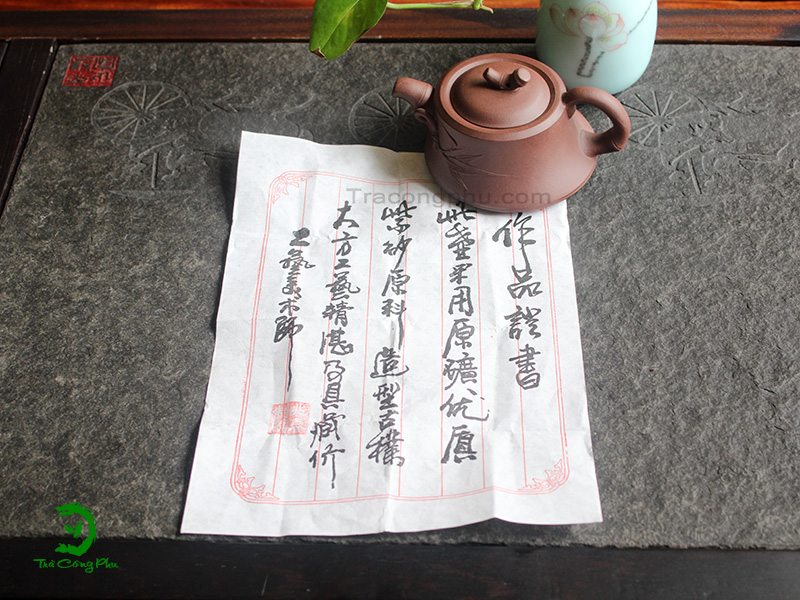 作品證書
此壺采用原礦优質
紫砂原料造型古樸
大方工藝精湛乃具藏价
工藝美术師
Tracongphu.com
Trà Công Phu